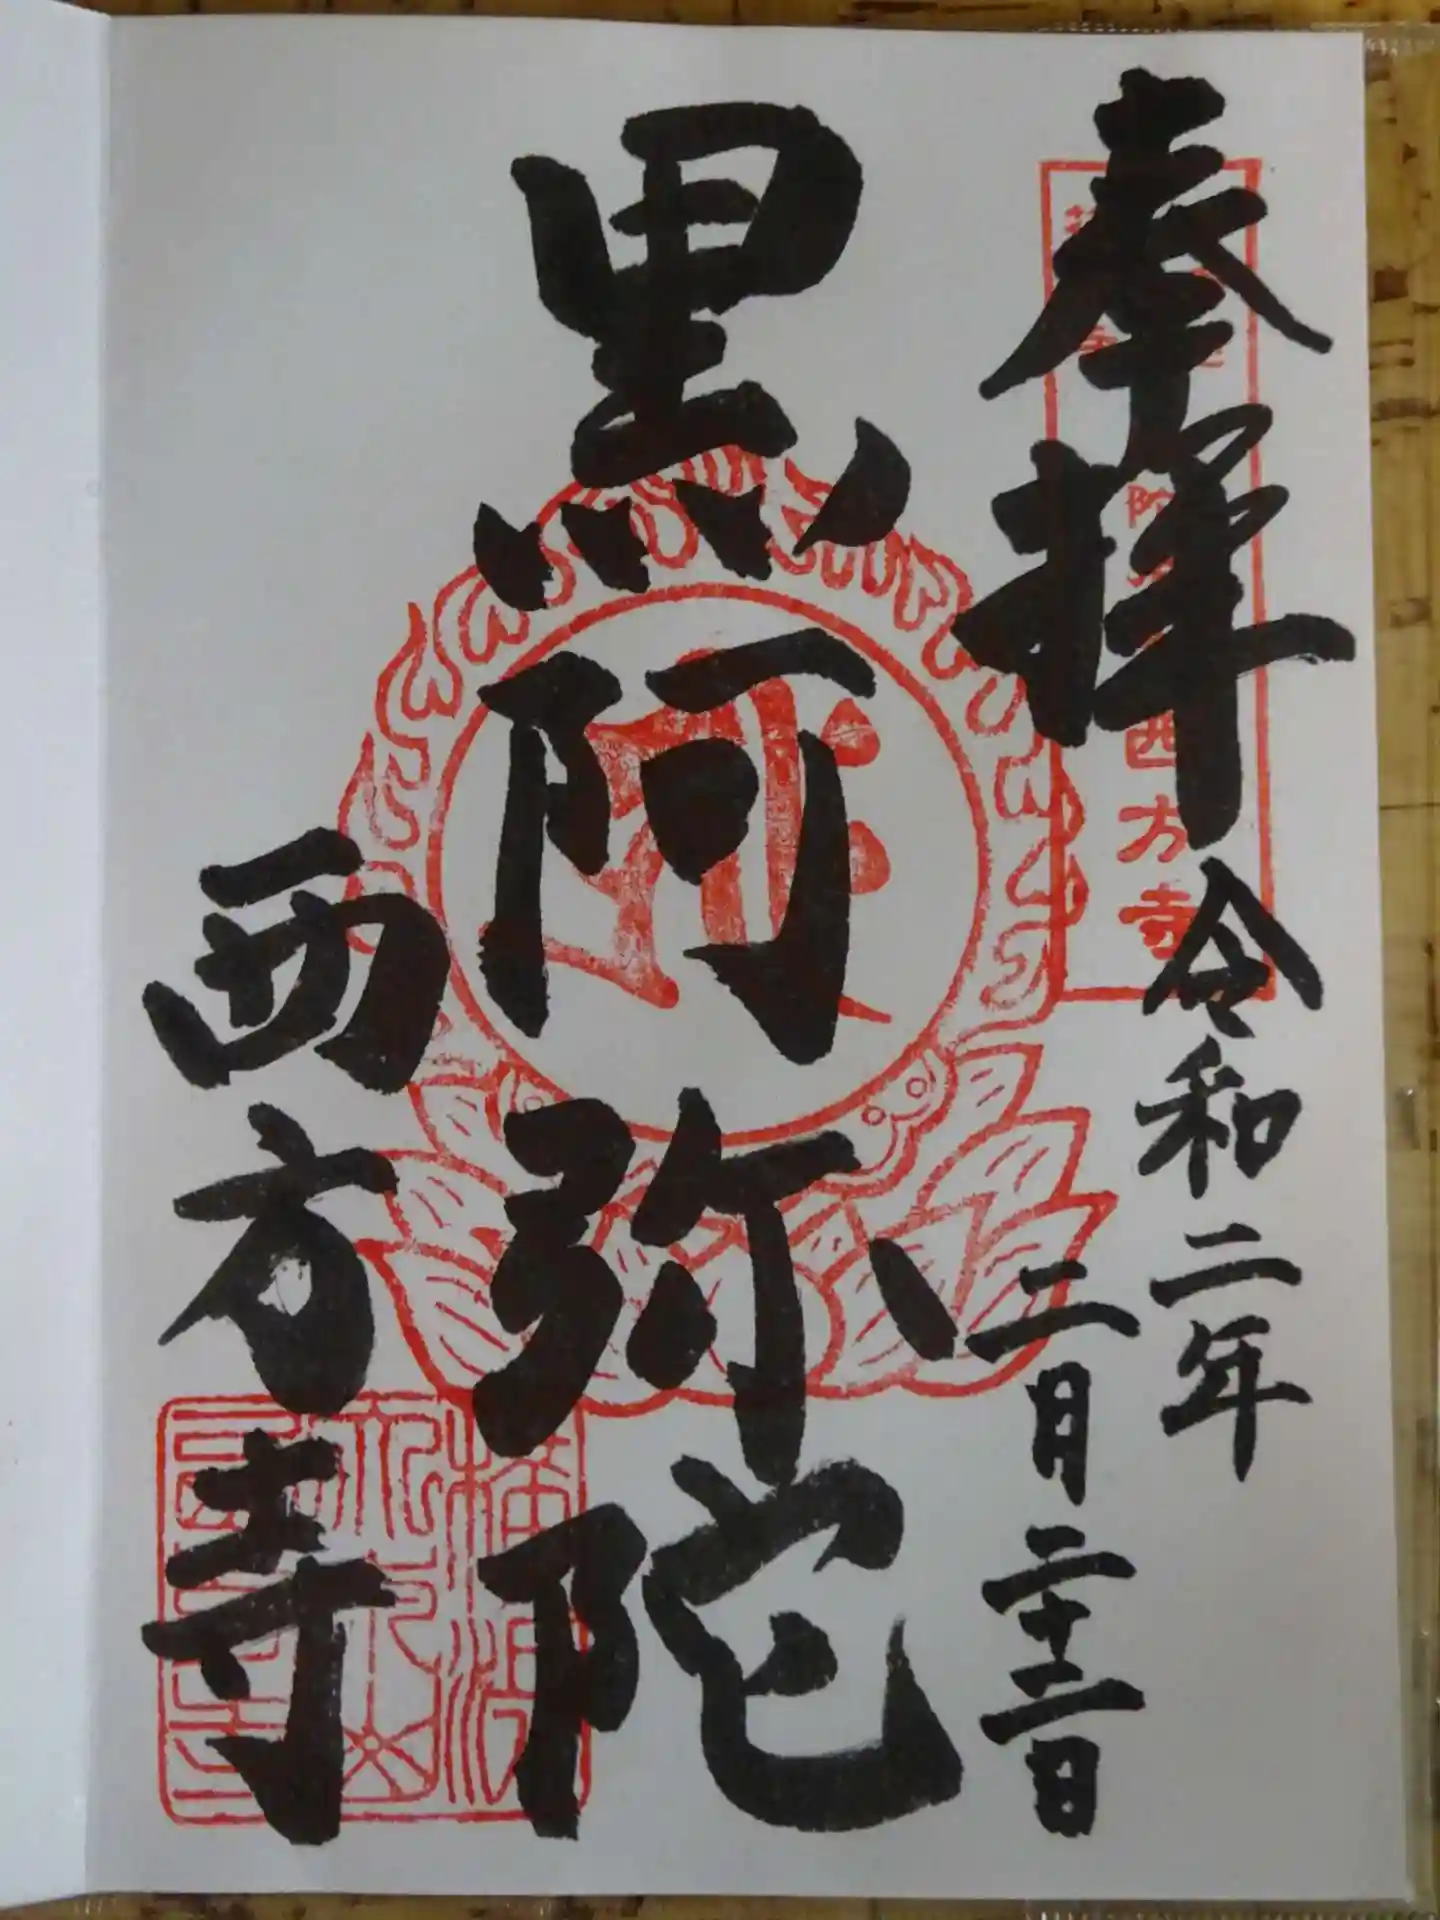 奉拝 令和二年
三月二十二日
黒阿弥陀
西方寺
西方寺